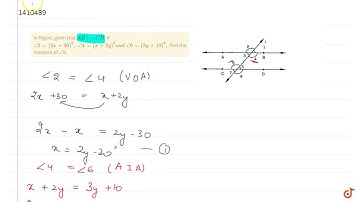 1410489
In Figure, given that AB || CD. If
∠2 = (2x + 30)°, ∠4 = (x + 2y)° and ∠6 = (3y + 10)°, find the
measure of ∠5.
∠2 = ∠4 (VOA)
2x + 30 = x + 2y
2x - x = 2y - 30
x = 2y - 30° — ①
∠4 = ∠6 (AIA)
x + 2y = 3y + 10
A B
C D